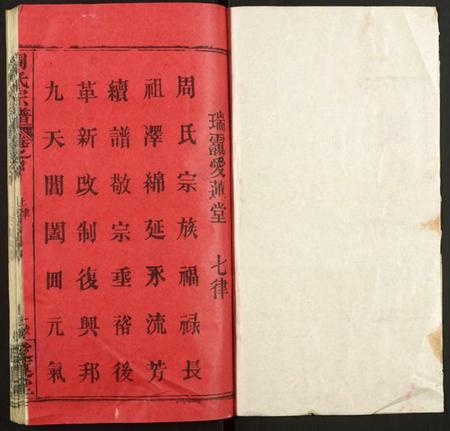 瑞靄愛蓮堂 七律
周氏宗族福祿長
祖澤綿延永流芳
續譜敬宗垂裕後
革新改制復興邦
九天閶闔回元氣
周氏宗譜
七律